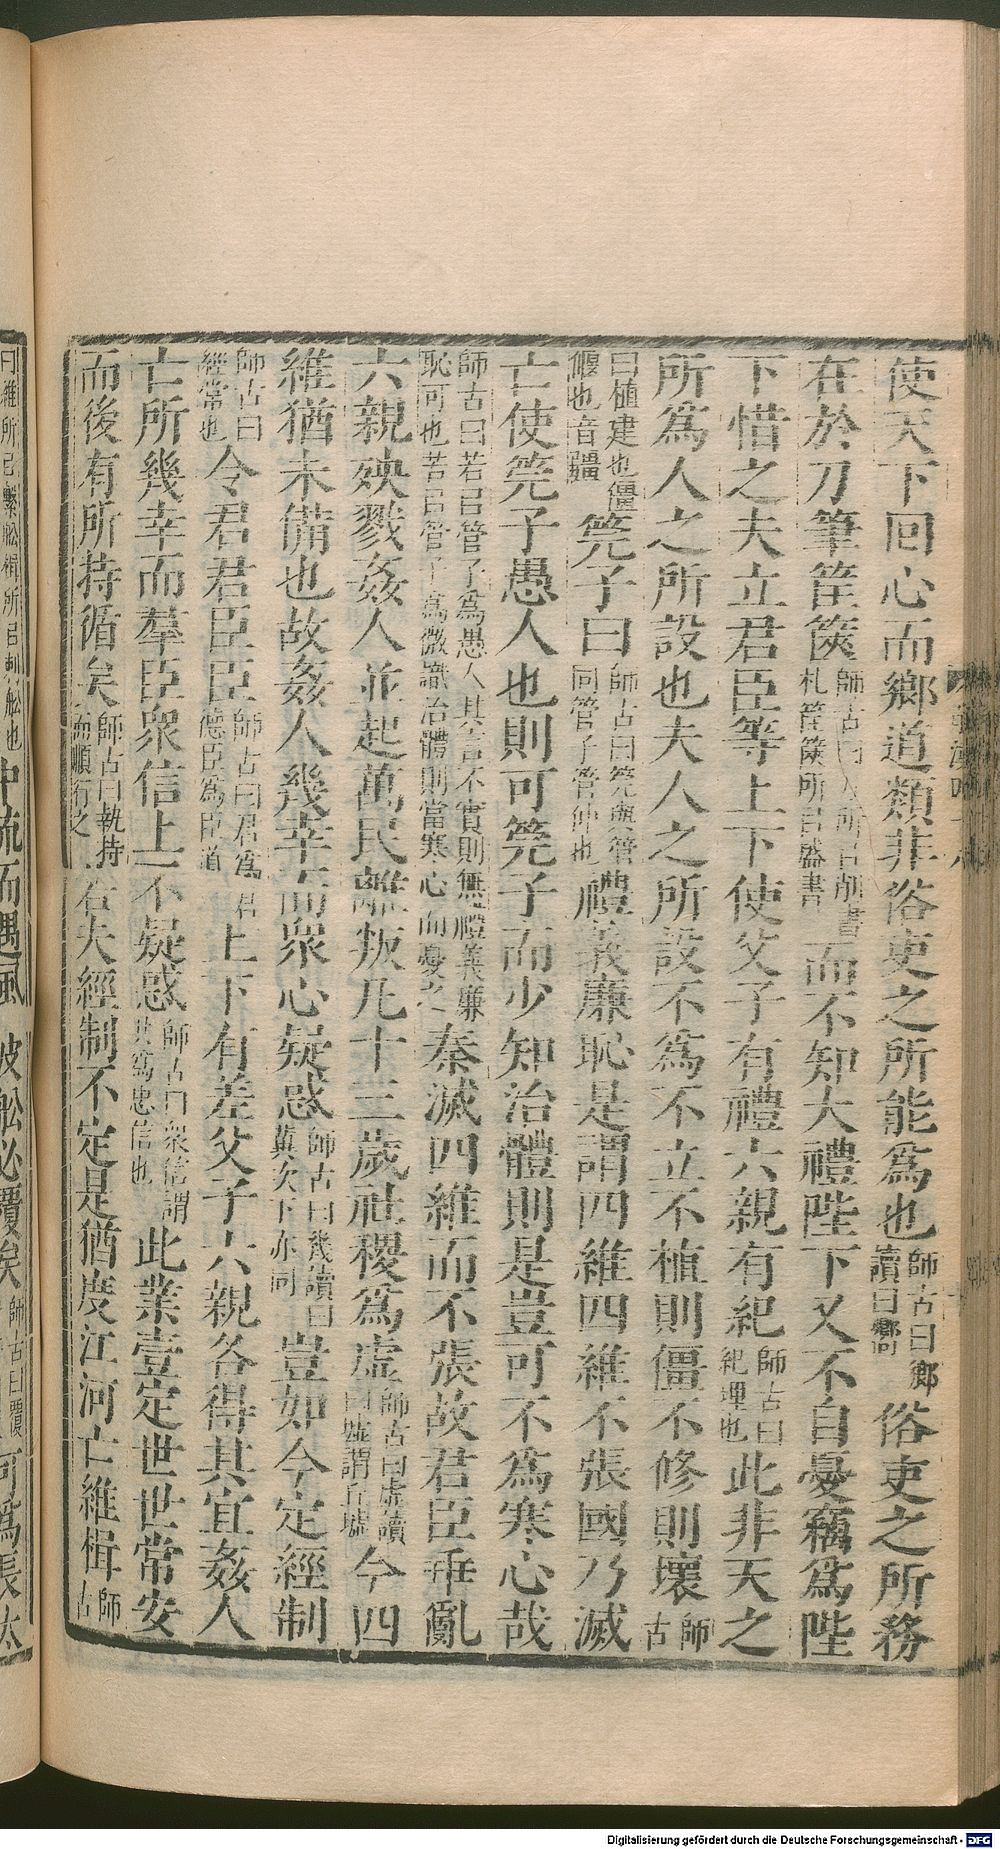 使天下回心而鄉道類非俗吏之所能為也師古曰鄉讀曰嚮俗吏之所務
在於刀筆筐篋師古曰刀所㠯削書札筐篋所㠯盛書而不知大禮陛下又不自憂竊為陛
下惜之夫立君臣等上下使父子有禮六親有紀師古曰紀理也此非天之
所為人之所設也夫人之所設不為不立不植則僵不修則壞師古
曰植建也僵偃也音疆筦子曰師古曰筦與管同管子管仲也禮義廉恥是謂四維四維不張國乃滅
亡使筦子愚人也則可筦子而少知治體則是豈可不為寒心哉
師古曰若㠯管子為愚人其言不實則無禮義廉恥可也若㠯管子為微識治體則當寒心而憂之秦滅四維而不張故君臣乖亂
六親殃戮姦人並起萬民離叛凡十三歲社稷為虛師古曰虛讀曰墟謂丘墟今四
維猶未備也故姦人幾幸而眾心疑惑師古曰幾讀曰冀次下亦同豈如今定經制
師古曰經常也令君君臣臣師古曰君為君德臣為臣道上下有差父子六親各得其宜姦人
亡所幾幸而羣臣眾信上不疑惑師古曰眾信謂共為忠信也此業壹定世世常安
而後有所持循矣師古曰執持而順行之若夫經制不定是猶度江河亡維楫師古
曰維所㠯繫船楫所㠯刺船也中流而遇風波船必覆矣師古曰覆可為長太
Digitalisierung gefördert durch die Deutsche Forschungsgemeinschaft - DFG